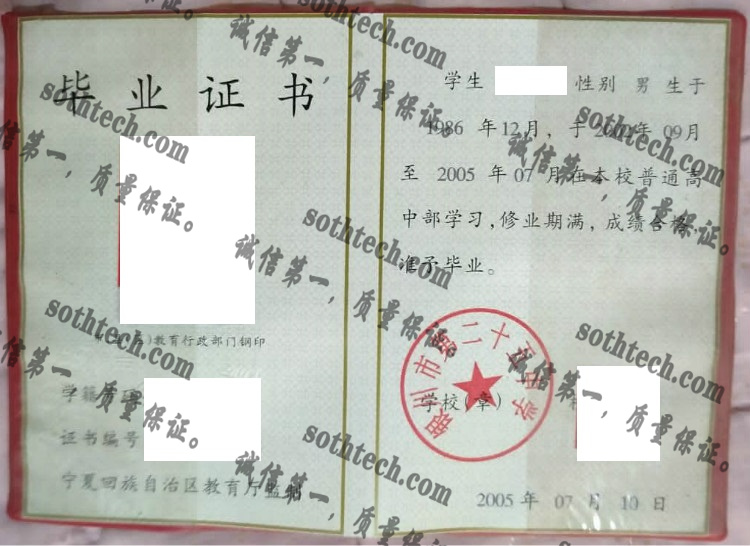 毕业证书
教育行政部门钢印
学籍
证书编号
宁夏回族自治区教育厅监制
学生 性别 男 生于
1986 年12月, 于2002年 09月
至 2005 年 07 月在本校普通高
中部学习, 修业期满, 成绩合格,
准予毕业。
银川市第二十五中学
学校(章)
2005 年 07 月 10 日
sothtech.com
诚信第一，质量保证。
sothtech.com
诚信第一，质量保证。
sothtech.com
诚信第一，质量保证。
sothtech.com
诚信第一，质量保证。
sothtech.com
诚信第一，质量保证。
sothtech.com
诚信第一，质量保证。
sothtech.com
诚信第一，质量保证。